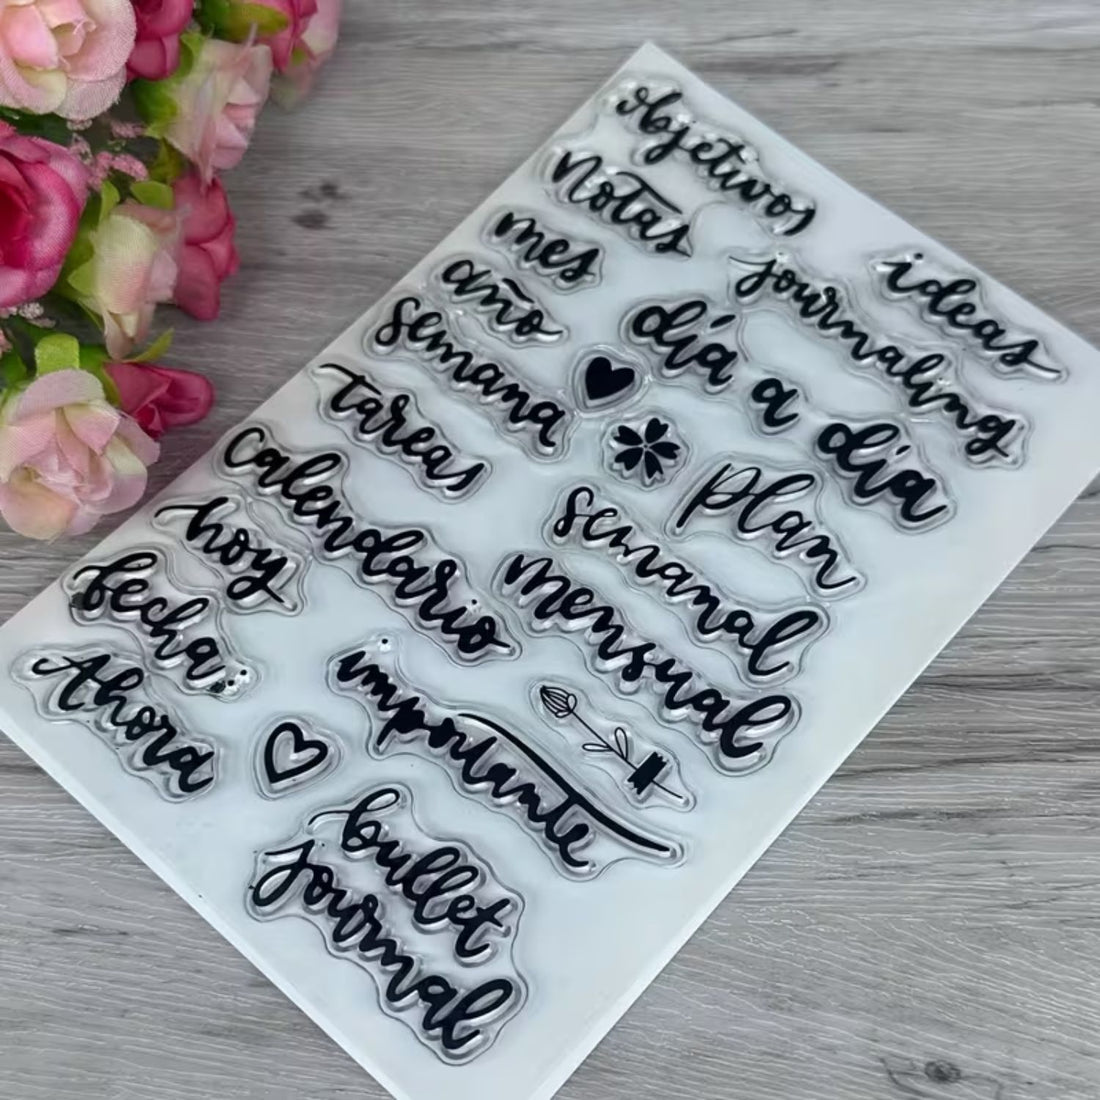 objetivos
notas
mes
año
semana
tareas
calendario
hoy
fecha
Ahora
ideas
journaling
día a día
plan
semanal
mensual
importante
bullet
journal